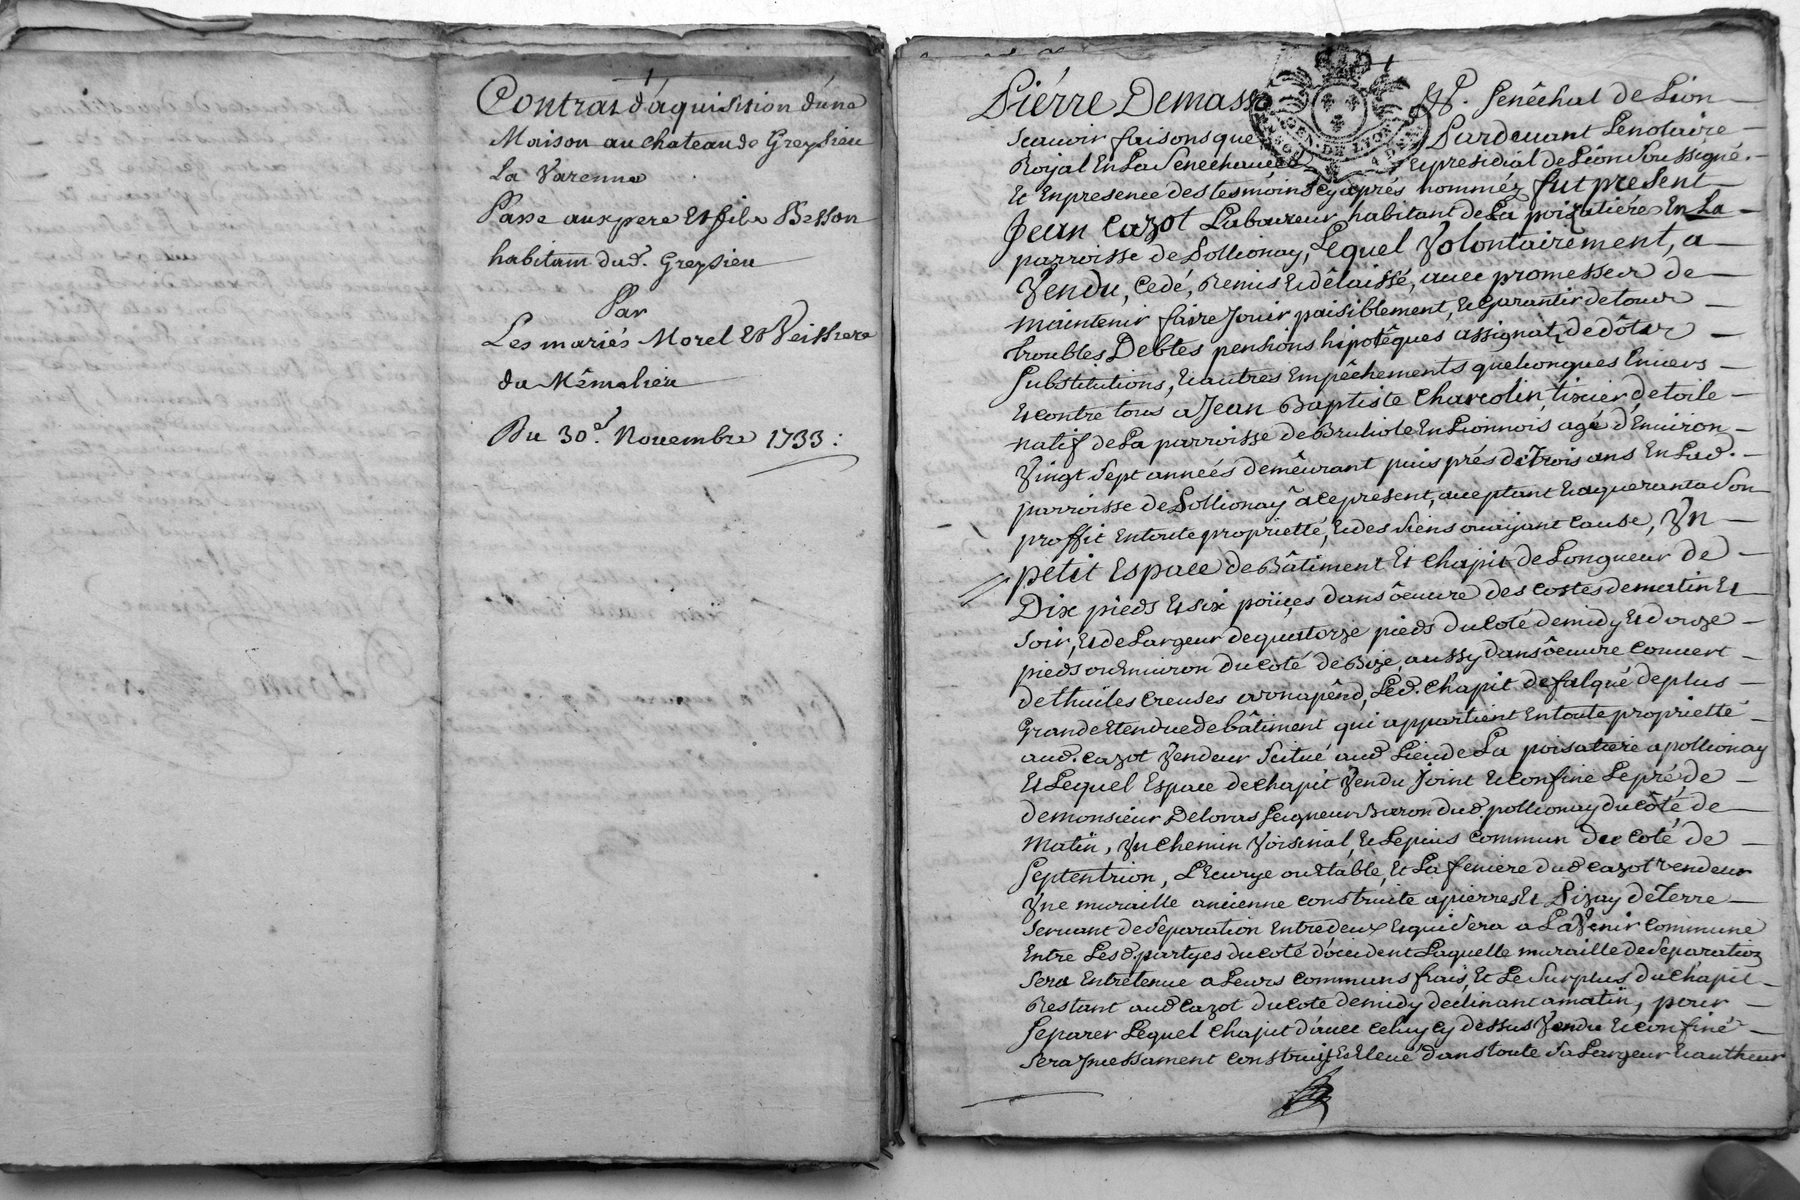 Contrat d'aquisition d'une
Maison au chateau de Greysieu
La Varenne
Passé aux pere et fils Besson
habitam dud. Greysieu
Par
Les mariés Morel et Veissiere
du
Du 30e. Novembre 1733:
Piérre Demass Sgr. Senêchal de Lion
Scavoir faisons que Pardevant Lenotaire
Roÿal En La Senechaucée et presidial de Lion Soussigné.
et Enpresence des tesmóins cy aprés nomméz fut present
Jean Cazot Laboureur habitant de La poizatiére En La
parroisse de Pollionay, Lequel Volontairement, a
Vendu, Cedé, Remis et dêlaissé, avec promesse de
maintenir faire Jouir paisiblement, et garantir de tous
troubles Debtes pensions hipotêques assignatz de dôtes
Substitutions, et autres Empêchements quelconques Envers
et contre tous a Jean Baptiste Charolin, tixier de toile
natif de La parroisse de Brulliole En Lionnois agé d'Environ
Vingt Sept anneés demêurant puis prés de trois ans En Lad.
parroisse de Pollionaÿ a ce present, acceptant et aquerant a Son
proffit en toute proprietté, et des Siens ou aÿant cause, Vn
petit Espace de Bâtiment et Chapit de Longueur de
Dix pieds et six poüces dans oeuvre des costes de matin et
Soir, et de Largeur de quatorze pieds du Coté de midy et douze
pieds ou Environ du coté de Bize, aussy dans oeuvre couvert
de thuiles creuses, Led. Chapit defalqué de plus
Grande Etendue de bâtiment qui appartient En toute proprietté
aud. Cazot Vendeur Scitué aud Lieu de La poisatiere a pollionay
et Lequel Espace de Chapit Vendu Joint et Confine Le pré, de
de monsieur Deloras Seigneur Baron dud. pollionay du côté, de
Matin, Vn Chemin Voisinal, et Le puis Commun du coté de
Septentrion, L'Ecurÿe ou Etable, et La feniere dud Cazot vendeur
Vne muraille ancienne construite a pierres et Pizay de terre
Servant de Séparation Entre deux et qui Sera a L'avenir commune
Entre Lesd. partyes du coté d'occident Laquelle muraille de Séparation
Sera Entretenue a Leurs communs frais, et Le Surplus du Chapit
Restant aud Cazot du Coté de midy declinant a matin, pour
Séparer Lequel Chapit d'avec celuy cy dessus Vendu et confiné
Sera Jncessament construit et Elevé dans toute Sa Largeur et autheur